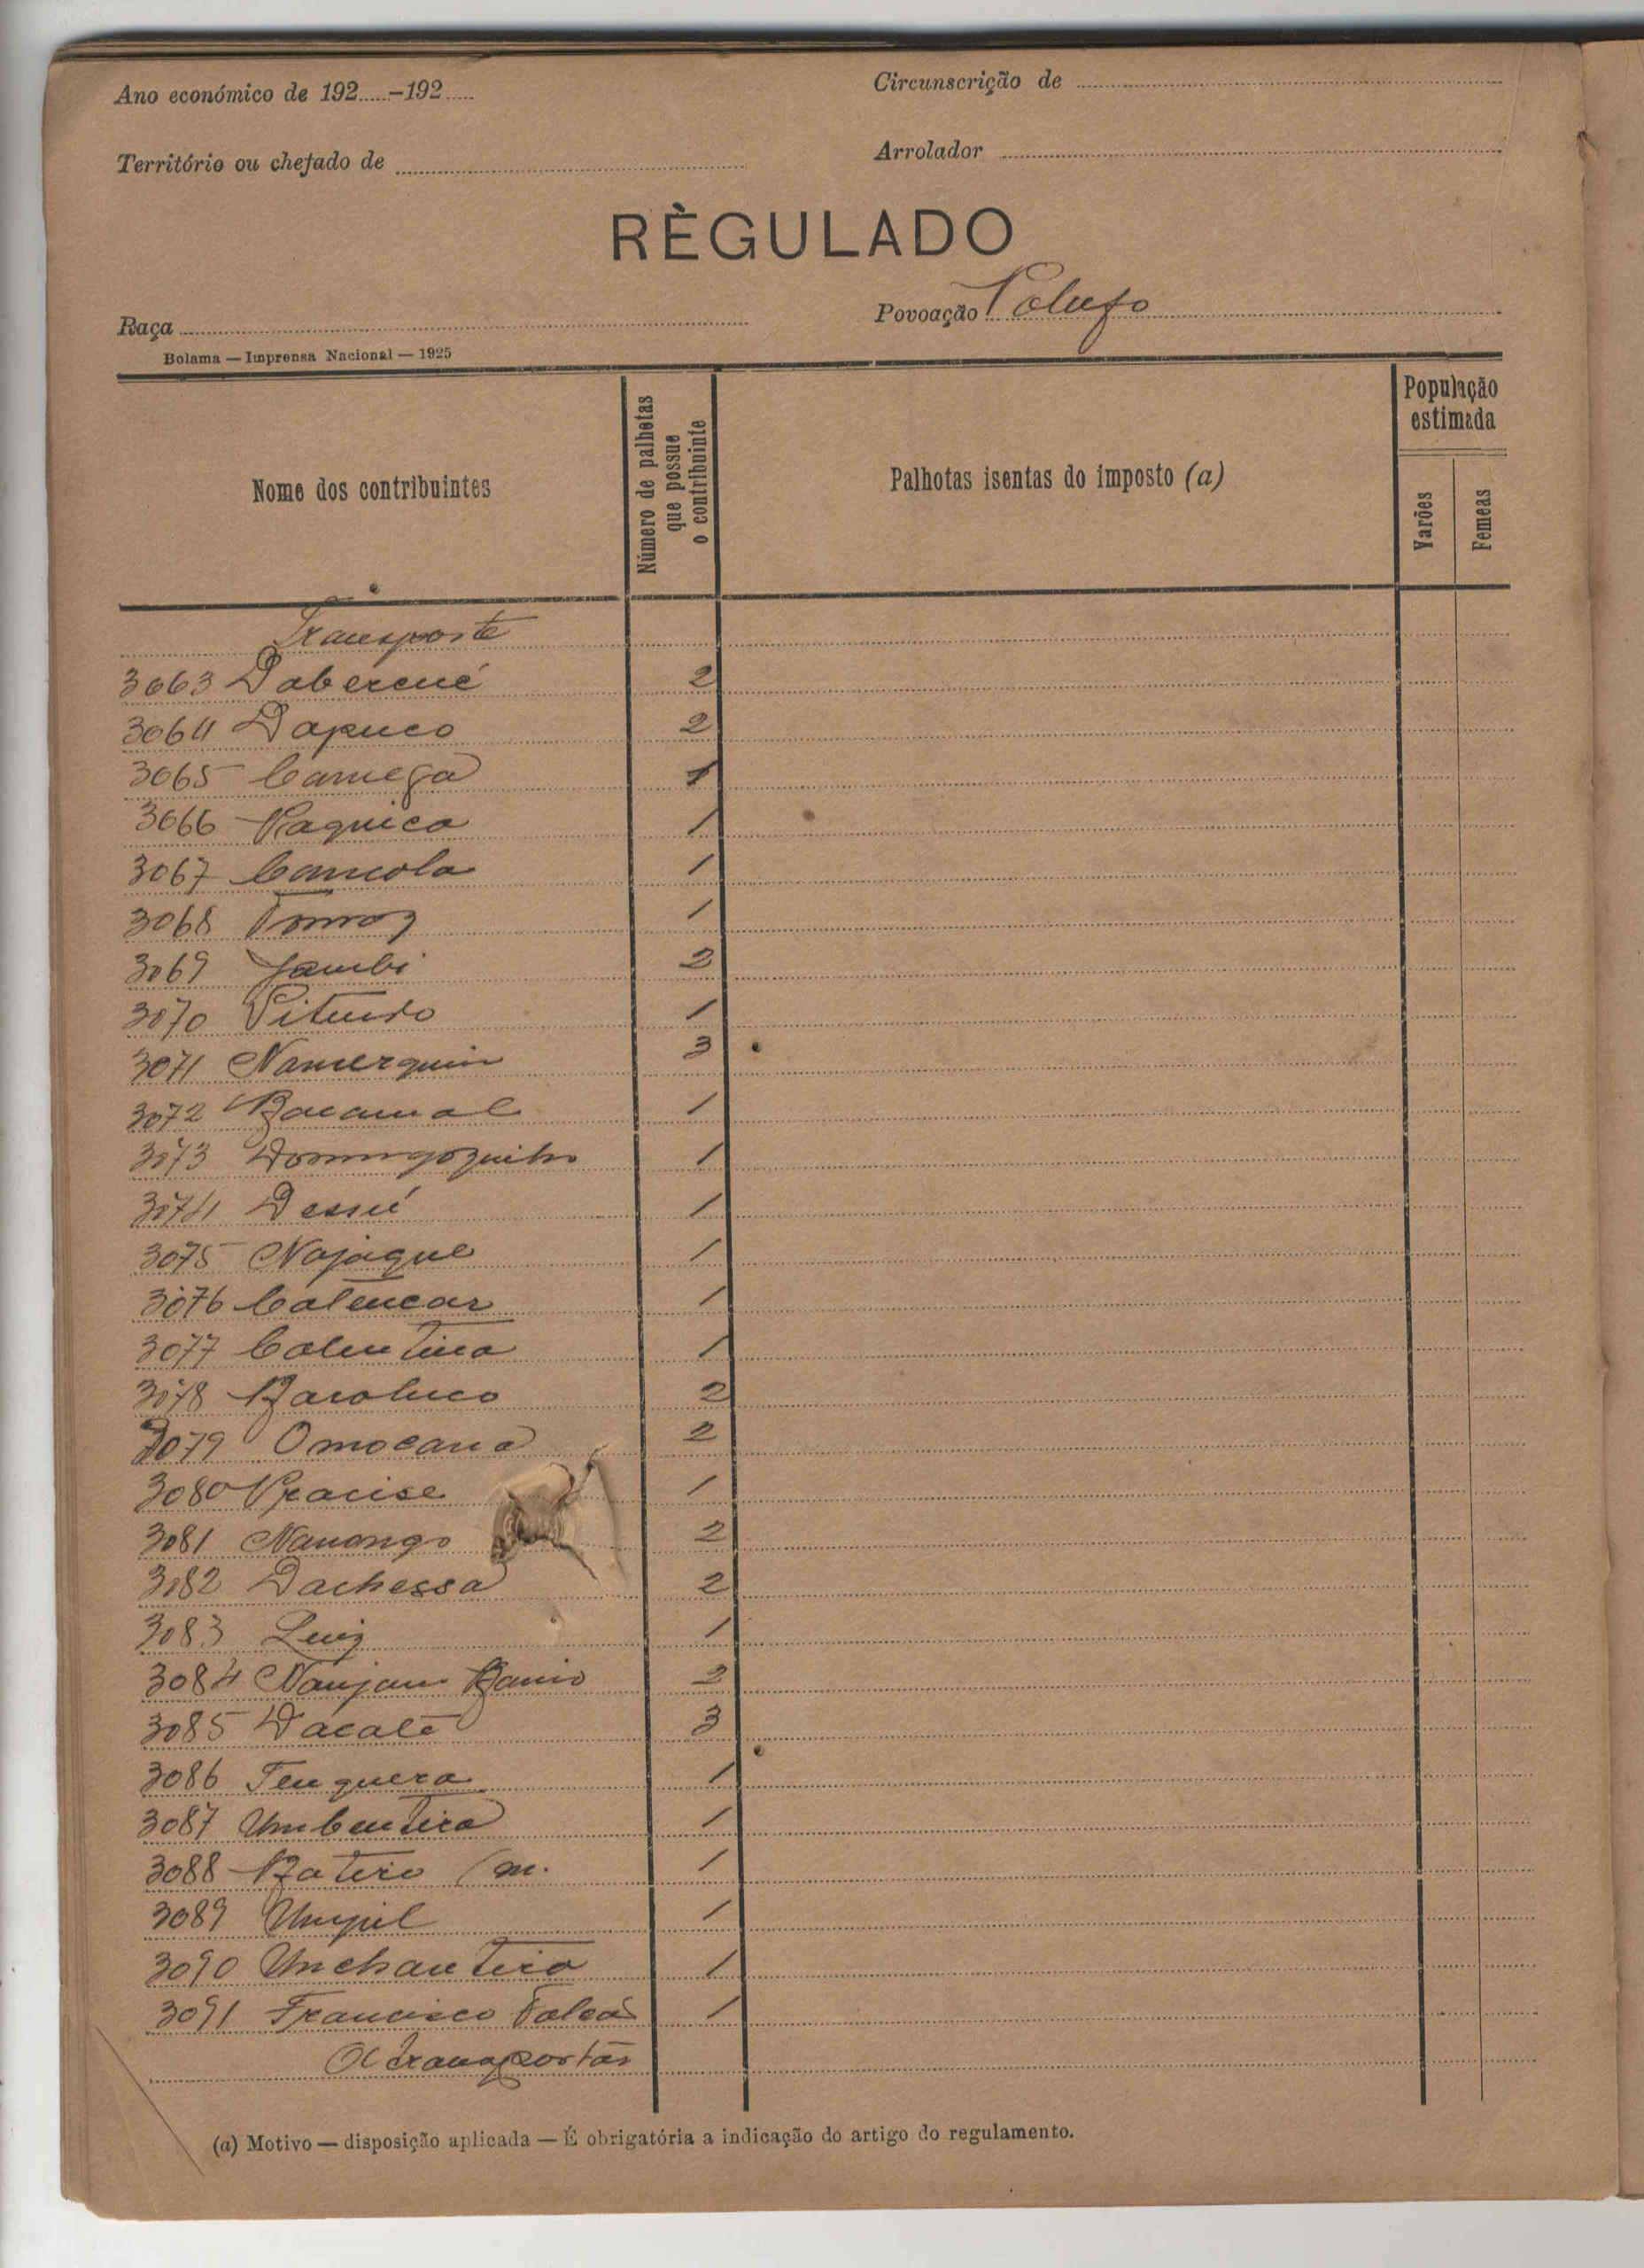 Ano económico de 192.....-192.....
Circunscrição de
Território ou chefado de
Arrolador
RÈGULADO
Raça
Povoação
Bolama — Imprensa Nacional — 1925
Nome dos contribuintes
Número de palhotas que possue o contribuinte
Palhotas isentas do imposto (a)
População estimada
Varões
Femeas
Transporte
3063 Daberené 2
3064 Dapuco 2
3065 1
3066 Paquica 1
3067 Cancola 1
3068 1
3069 Jambi 2
3070 1
3071 3
3072 Bacamal 1
3073 Domingozinho 1
3074 1
3075 Nojaque 1
3076 Catencar 1
3077 Calentina 1
3078 Baroluco 2
3079 Omocana 2
3080 1
3081 Nanongo 2
3082 Dachessa 2
3083 Luiz 1
3084 Nanjam 2
3085 Dacaté 3
3086 Tenquera 1
3087 1
3088 1
3089 1
3090 1
3091 Francisco Falcão 1
A transportar
(a) Motivo — disposição aplicada — É obrigatória a indicação do artigo do regulamento.